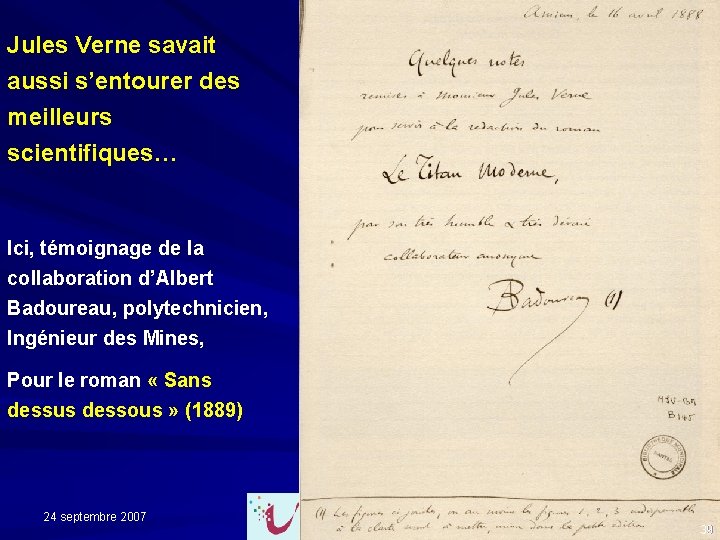 Jules Verne savait
aussi s’entourer des
meilleurs
scientifiques…
Ici, témoignage de la
collaboration d’Albert
Badoureau, polytechnicien,
Ingénieur des Mines,
Pour le roman « Sans
dessus dessous » (1889)
24 septembre 2007
Amiens, le 16 avril 1888
Quelques notes
remises à Monsieur Jules Verne
pour servir à la rédaction du roman
Le Titan Moderne,
par son très humble & très dévoué
collaborateur anonyme
Badoureau (1)
B 145
BIBLIOTHEQUE MUNICIPALE
NANTES
(1) Les figures ci jointes, ou au moins les figures 1, 2, 3 indispensables
à la clarté sont à mettre, même dans la petite édition
39